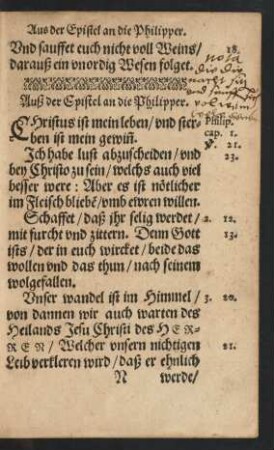 Aus der Epistel an die Philipper.
Vnd sauffet euch nicht voll Weins/ 18.
darauß ein vnordig Wesen folget.
nota
Auß der Epistel an die Philipper.
CHristus ist mein leben/ vnd ster- Philip.
ben ist mein gewiñ. cap. 1.
v. 21.
Ich habe lust abzuscheiden/ vnd 23.
bey Christo zu sein/ welchs auch viel
besser were : Aber es ist nötlicher
im Fleisch bliebē/ vmb ewren willen.
Schaffet/ daß jhr selig werdet/ 2. 12.
mit furcht vnd zittern. Denn Gott 13.
ists/ der in euch wircket/ beide das
wollen vnd das thun/ nach seinem
wolgefallen.
Vnser wandel ist im Himmel/ 3. 20.
von dannen wir auch warten des
Heilands Jesu Christi des HER-
REN/ Welcher vnsern nichtigen 21.
Leib verkleren wird/ daß er ehnlich
N werde/